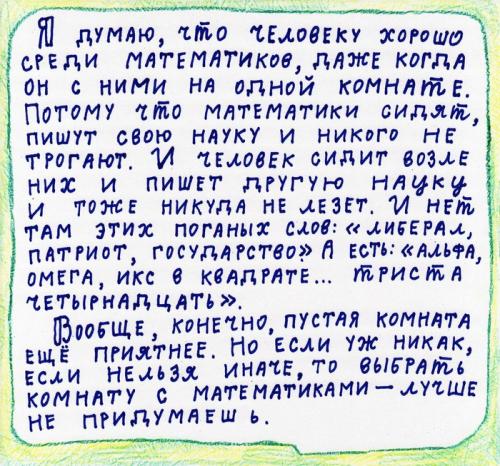 Я думаю, что человеку хорошо
среди математиков, даже когда
он с ними на одной комнате.
Потому что математики сидят,
пишут свою науку и никого не
трогают. И человек сидит возле
них и пишет другую науку
и тоже никуда не лезет. И нет
там этих поганых слов: «либерал,
патриот, государство» А есть: «альфа,
омега, икс в квадрате... триста
четырнадцать».
Вообще, конечно, пустая комната
ещё приятнее. Но если уж никак,
если нельзя иначе, то выбрать
комнату с математиками — лучше
не придумаешь.